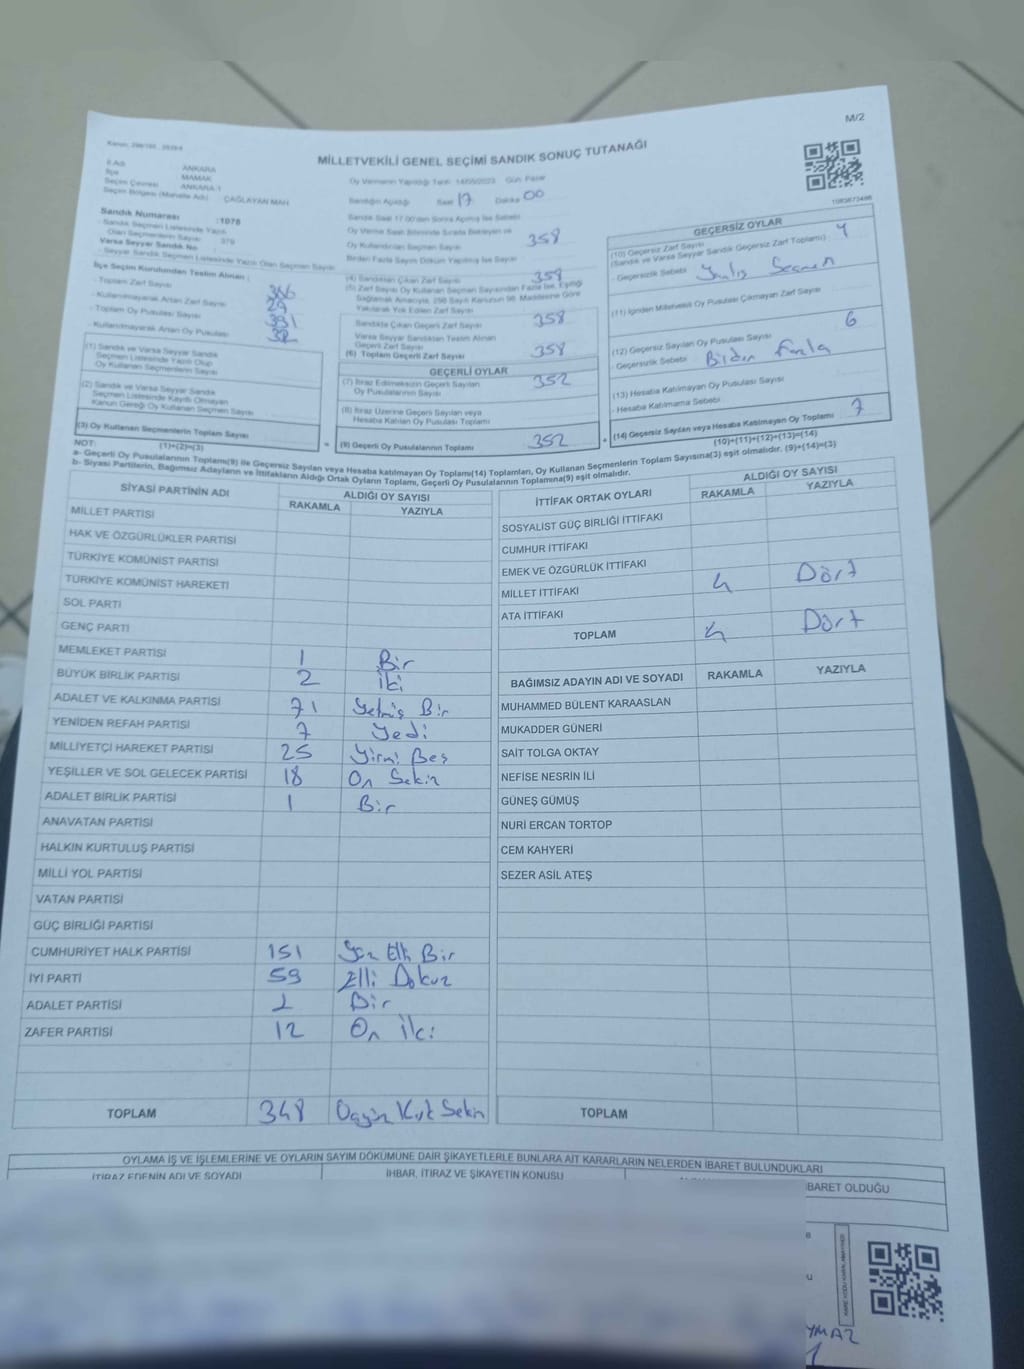 M/2
MİLLETVEKİLİ GENEL SEÇİMİ SANDIK SONUÇ TUTANAĞI
İl Adı : ANKARA
İlçe : MAMAK
Seçim Çevresi : ANKARA 1
Seçim Bölgesi (Mahalle Adı) : ÇAĞLAYAN MAH
Sandık Numarası : 1078
Sandık Seçmen Listesinde Yazılı
Olan Seçmenlerin Sayısı
Varsa Seyyar Sandık No
Seyyar Sandık Seçmen Listesinde Yazılı Olan Seçmen Sayısı
İlçe Seçim Kurulundan Teslim Alınan :
- Toplam Zarf Sayısı
- Kullanılmayarak Artan Zarf Sayısı 29
- Toplam Oy Pusulası Sayısı
- Kullanılmayarak Artan Oy Pusulası
(1) Sandık ve Varsa Seyyar Sandık
Seçmen Listesinde Yazılı Olup
Oy Kullanan Seçmenlerin Sayısı
(2) Sandık ve Varsa Seyyar Sandık
Seçmen Listesinde Kayıtlı Olmayan
Kanun Gereği Oy Kullanan Seçmen Sayısı
(3) Oy Kullanan Seçmenlerin Toplam Sayısı
(1)+(2)=(3)
Oy Vermenin Yapıldığı Tarih: 14/05/2023 Gün: Pazar
Sandığın Açıldığı Saat 17 Dakika 00
Sandık Saat 17.00'den Sonra Açılmış İse Sebebi
Oy Verme Saati Bitiminde Sırada Bekleyen ve
Oy Kullandırılan Seçmen Sayısı 358
Birden Fazla Sayım Döküm Yapılmış İse Sayısı
(4) Sandıktan Çıkan Zarf Sayısı
(5) Zarf Sayısı Oy Kullanan Seçmen Sayısından Fazla İse, Eşitliği
Sağlamak Amacıyla, 298 Sayılı Kanunun 98. Maddesine Göre
Yakılarak Yok Edilen Zarf Sayısı
Sandıkta Çıkan Geçerli Zarf Sayısı 358
Varsa Seyyar Sandıktan Teslim Alınan
Geçerli Zarf Sayısı
(6) Toplam Geçerli Zarf Sayısı 358
GEÇERLİ OYLAR
(7) İtiraz Edilmeksizin Geçerli Sayılan
Oy Pusulalarının Sayısı 352
(8) İtiraz Üzerine Geçerli Sayılan veya
Hesaba Katılan Oy Pusulası Toplamı
(9) Geçerli Oy Pusulalarının Toplamı 352
GEÇERSİZ OYLAR
(10) Geçersiz Zarf Sayısı
(Sandık ve Varsa Seyyar Sandık Geçersiz Zarf Toplamı) :
- Geçersizlik Sebebi Yanlış Seçmen
(11) İçinden Milletvekili Oy Pusulası Çıkmayan Zarf Sayısı
(12) Geçersiz Sayılan Oy Pusulası Sayısı 6
- Geçersizlik Sebebi Birden Fazla
(13) Hesaba Katılmayan Oy Pusulası Sayısı
- Hesaba Katılmama Sebebi
(14) Geçersiz Sayılan veya Hesaba Katılmayan Oy Toplamı 7
(10)+(11)+(12)+(13)=(14)
NOT:
a- Geçerli Oy Pusulalarının Toplamı(9) ile Geçersiz Sayılan veya Hesaba katılmayan Oy Toplamı(14) Toplamları, Oy Kullanan Seçmenlerin Toplam Sayısına(3) eşit olmalıdır. (9)+(14)=(3)
b- Siyasi Partilerin, Bağımsız Adayların ve İttifakların Aldığı Ortak Oyların Toplamı, Geçerli Oy Pusulalarının Toplamına(9) eşit olmalıdır.
SİYASİ PARTİNİN ADI ALDIĞI OY SAYISI
RAKAMLA YAZIYLA
MİLLET PARTİSİ
HAK VE ÖZGÜRLÜKLER PARTİSİ
TÜRKİYE KOMÜNİST PARTİSİ
TÜRKİYE KOMÜNİST HAREKETİ
SOL PARTİ
GENÇ PARTİ
MEMLEKET PARTİSİ 1 Bir
BÜYÜK BİRLİK PARTİSİ 2 İki
ADALET VE KALKINMA PARTİSİ 71 Yetmiş Bir
YENİDEN REFAH PARTİSİ 7 Yedi
MİLLİYETÇİ HAREKET PARTİSİ 25 Yirmi Beş
YEŞİLLER VE SOL GELECEK PARTİSİ 18 On Sekiz
ADALET BİRLİK PARTİSİ 1 Bir
ANAVATAN PARTİSİ
HALKIN KURTULUŞ PARTİSİ
MİLLİ YOL PARTİSİ
VATAN PARTİSİ
GÜÇ BİRLİĞİ PARTİSİ
CUMHURİYET HALK PARTİSİ 151 Yüz Elli Bir
İYİ PARTİ 59 Elli Dokuz
ADALET PARTİSİ 1 Bir
ZAFER PARTİSİ 12 On İki
TOPLAM 348 Üçyüz Kırk Sekiz
İTTİFAK ORTAK OYLARI ALDIĞI OY SAYISI
RAKAMLA YAZIYLA
SOSYALİST GÜÇ BİRLİĞİ İTTİFAKI
CUMHUR İTTİFAKI
EMEK VE ÖZGÜRLÜK İTTİFAKI
MİLLET İTTİFAKI 4 Dört
ATA İTTİFAKI
TOPLAM 4 Dört
BAĞIMSIZ ADAYIN ADI VE SOYADI RAKAMLA YAZIYLA
MUHAMMED BÜLENT KARAASLAN
MUKADDER GÜNERİ
SAİT TOLGA OKTAY
NEFİSE NESRİN İLİ
GÜNEŞ GÜMÜŞ
NURİ ERCAN TORTOP
CEM KAHYERİ
SEZER ASİL ATEŞ
TOPLAM
OYLAMA İŞ VE İŞLEMLERİNE VE OYLARIN SAYIM DÖKÜMÜNE DAİR ŞİKAYETLERLE BUNLARA AİT KARARLARIN NELERDEN İBARET BULUNDUKLARI
İTİRAZ EDENİN ADI VE SOYADI İHBAR, İTİRAZ VE ŞİKAYETİN KONUSU İBARET OLDUĞU